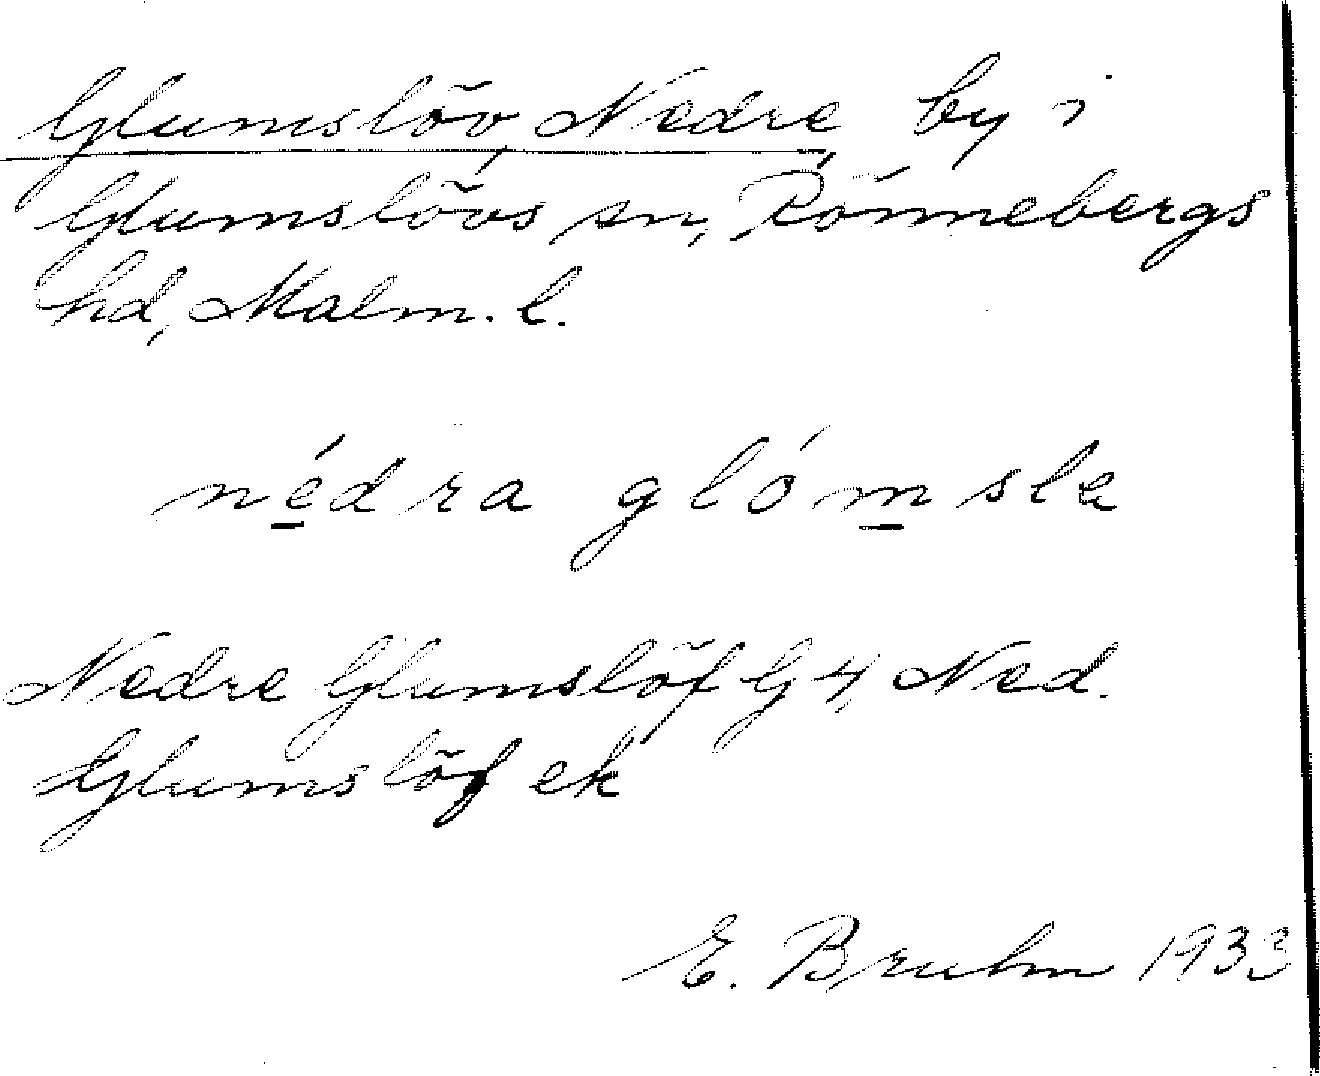 Glumslöv, Nedre, by i
Glumslövs sn, Rönnebergs
hd, Malm. l.
nédra glómsla
Nedre Glumslöf G 4, Ned.
Glumslöf ek
E. Bruhn 1933